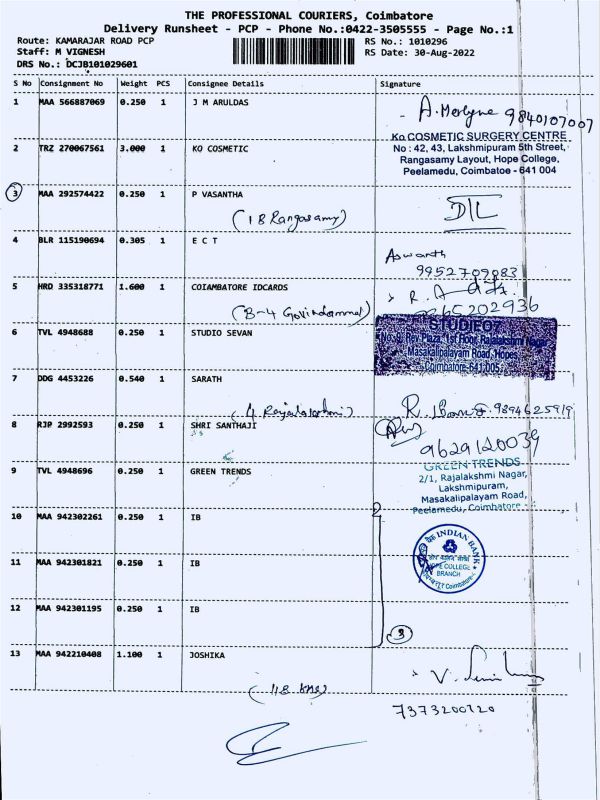 THE PROFESSIONAL COURIERS, Coimbatore
Delivery Runsheet - PCP - Phone No.:0422-3505555 - Page No.:1
Route: KAMARAJAR ROAD PCP RS No.: 1010296
Staff: M VIGNESH RS Date: 30-Aug-2022
DRS No.: DCJB101029601
S No Consignment No Weight PCS Consignee Details Signature
1 MAA 566887069 0.250 1 J M ARULDAS
9840107007
2 TRZ 270067561 3.000 1 KO COSMETIC
Ko COSMETIC SURGERY CENTRE
No : 42, 43, Lakshmipuram 5th Street,
Rangasamy Layout, Hope College,
Peelamedu, Coimbatoe - 641 004
3 MAA 292574422 0.250 1 P VASANTHA
(18 Rangasamy) D/L
4 BLR 115190694 0.305 1 E C T
Aswanth
9952709883
5 HRD 335318771 1.600 1 COIAMBATORE IDCARDS
(B-4 Govindammal)
6 TVL 4948688 0.250 1 STUDIO SEVAN
STUDIEO7
Rev Plaza, 1st Floor, Rajalakshmi Nagar
Masakalipalayam Road, Hopes
Coimbatore-641005
7 DDG 4453226 0.540 1 SARATH
9894625919
8 RJP 2992593 0.250 1 SHRI SANTHAJI
9629120039
9 TVL 4948696 0.250 1 GREEN TRENDS
GREEN TRENDS
2/1, Rajalakshmi Nagar,
Lakshmipuram,
Masakalipalayam Road,
Peelamedu, Coimbatore
10 MAA 942302261 0.250 1 IB
INDIAN BANK
HOPE COLLEGE
BRANCH
11 MAA 942301821 0.250 1 IB
12 MAA 942301195 0.250 1 IB
3
13 MAA 942210408 1.100 1 JOSHIKA
7373200720